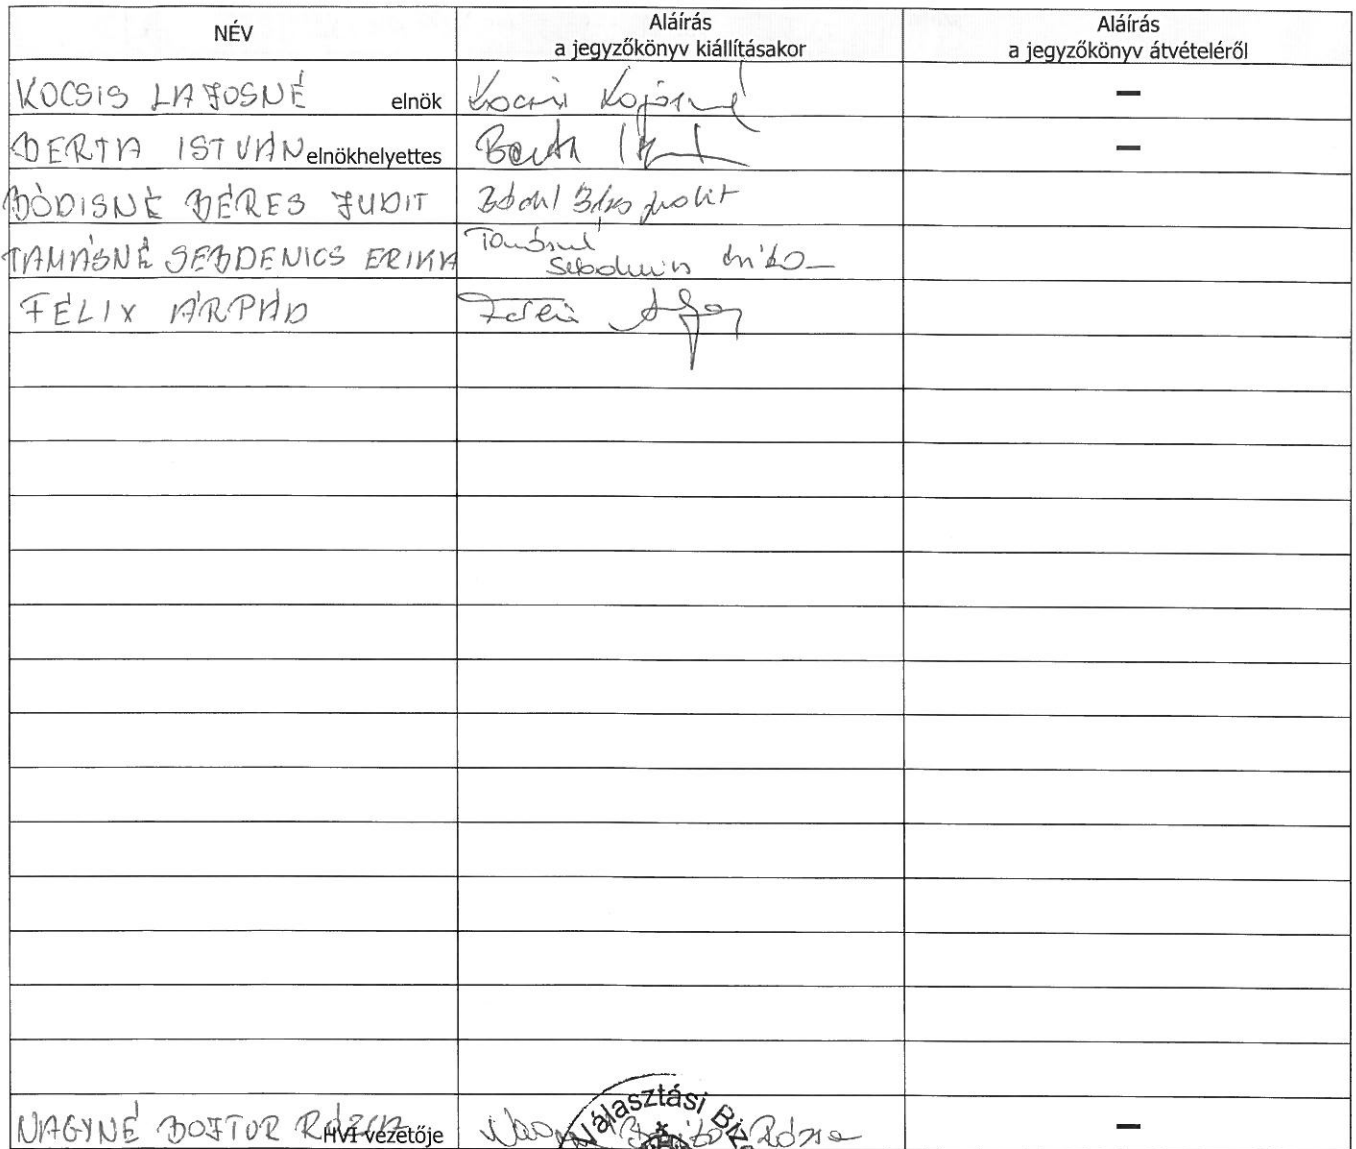 NÉV
Aláírás
a jegyzőkönyv kiállításakor
Aláírás
a jegyzőkönyv átvételéről
KOCSIS LAJOSNÉ elnök Kocsis Lajosné –
BERTA ISTVÁN elnökhelyettes Berta –
BÓDISNÉ BÉRES JUDIT Judit
TAMÁSNÉ SEBDENICS ERIKA Tamásné
Sebdenics Erika
FÉLIX ÁRPÁD Félix
NAGYNÉ BOJTOR RÓZSA HVI vezetője Nagyné Bojtor Rózsa –
Választási